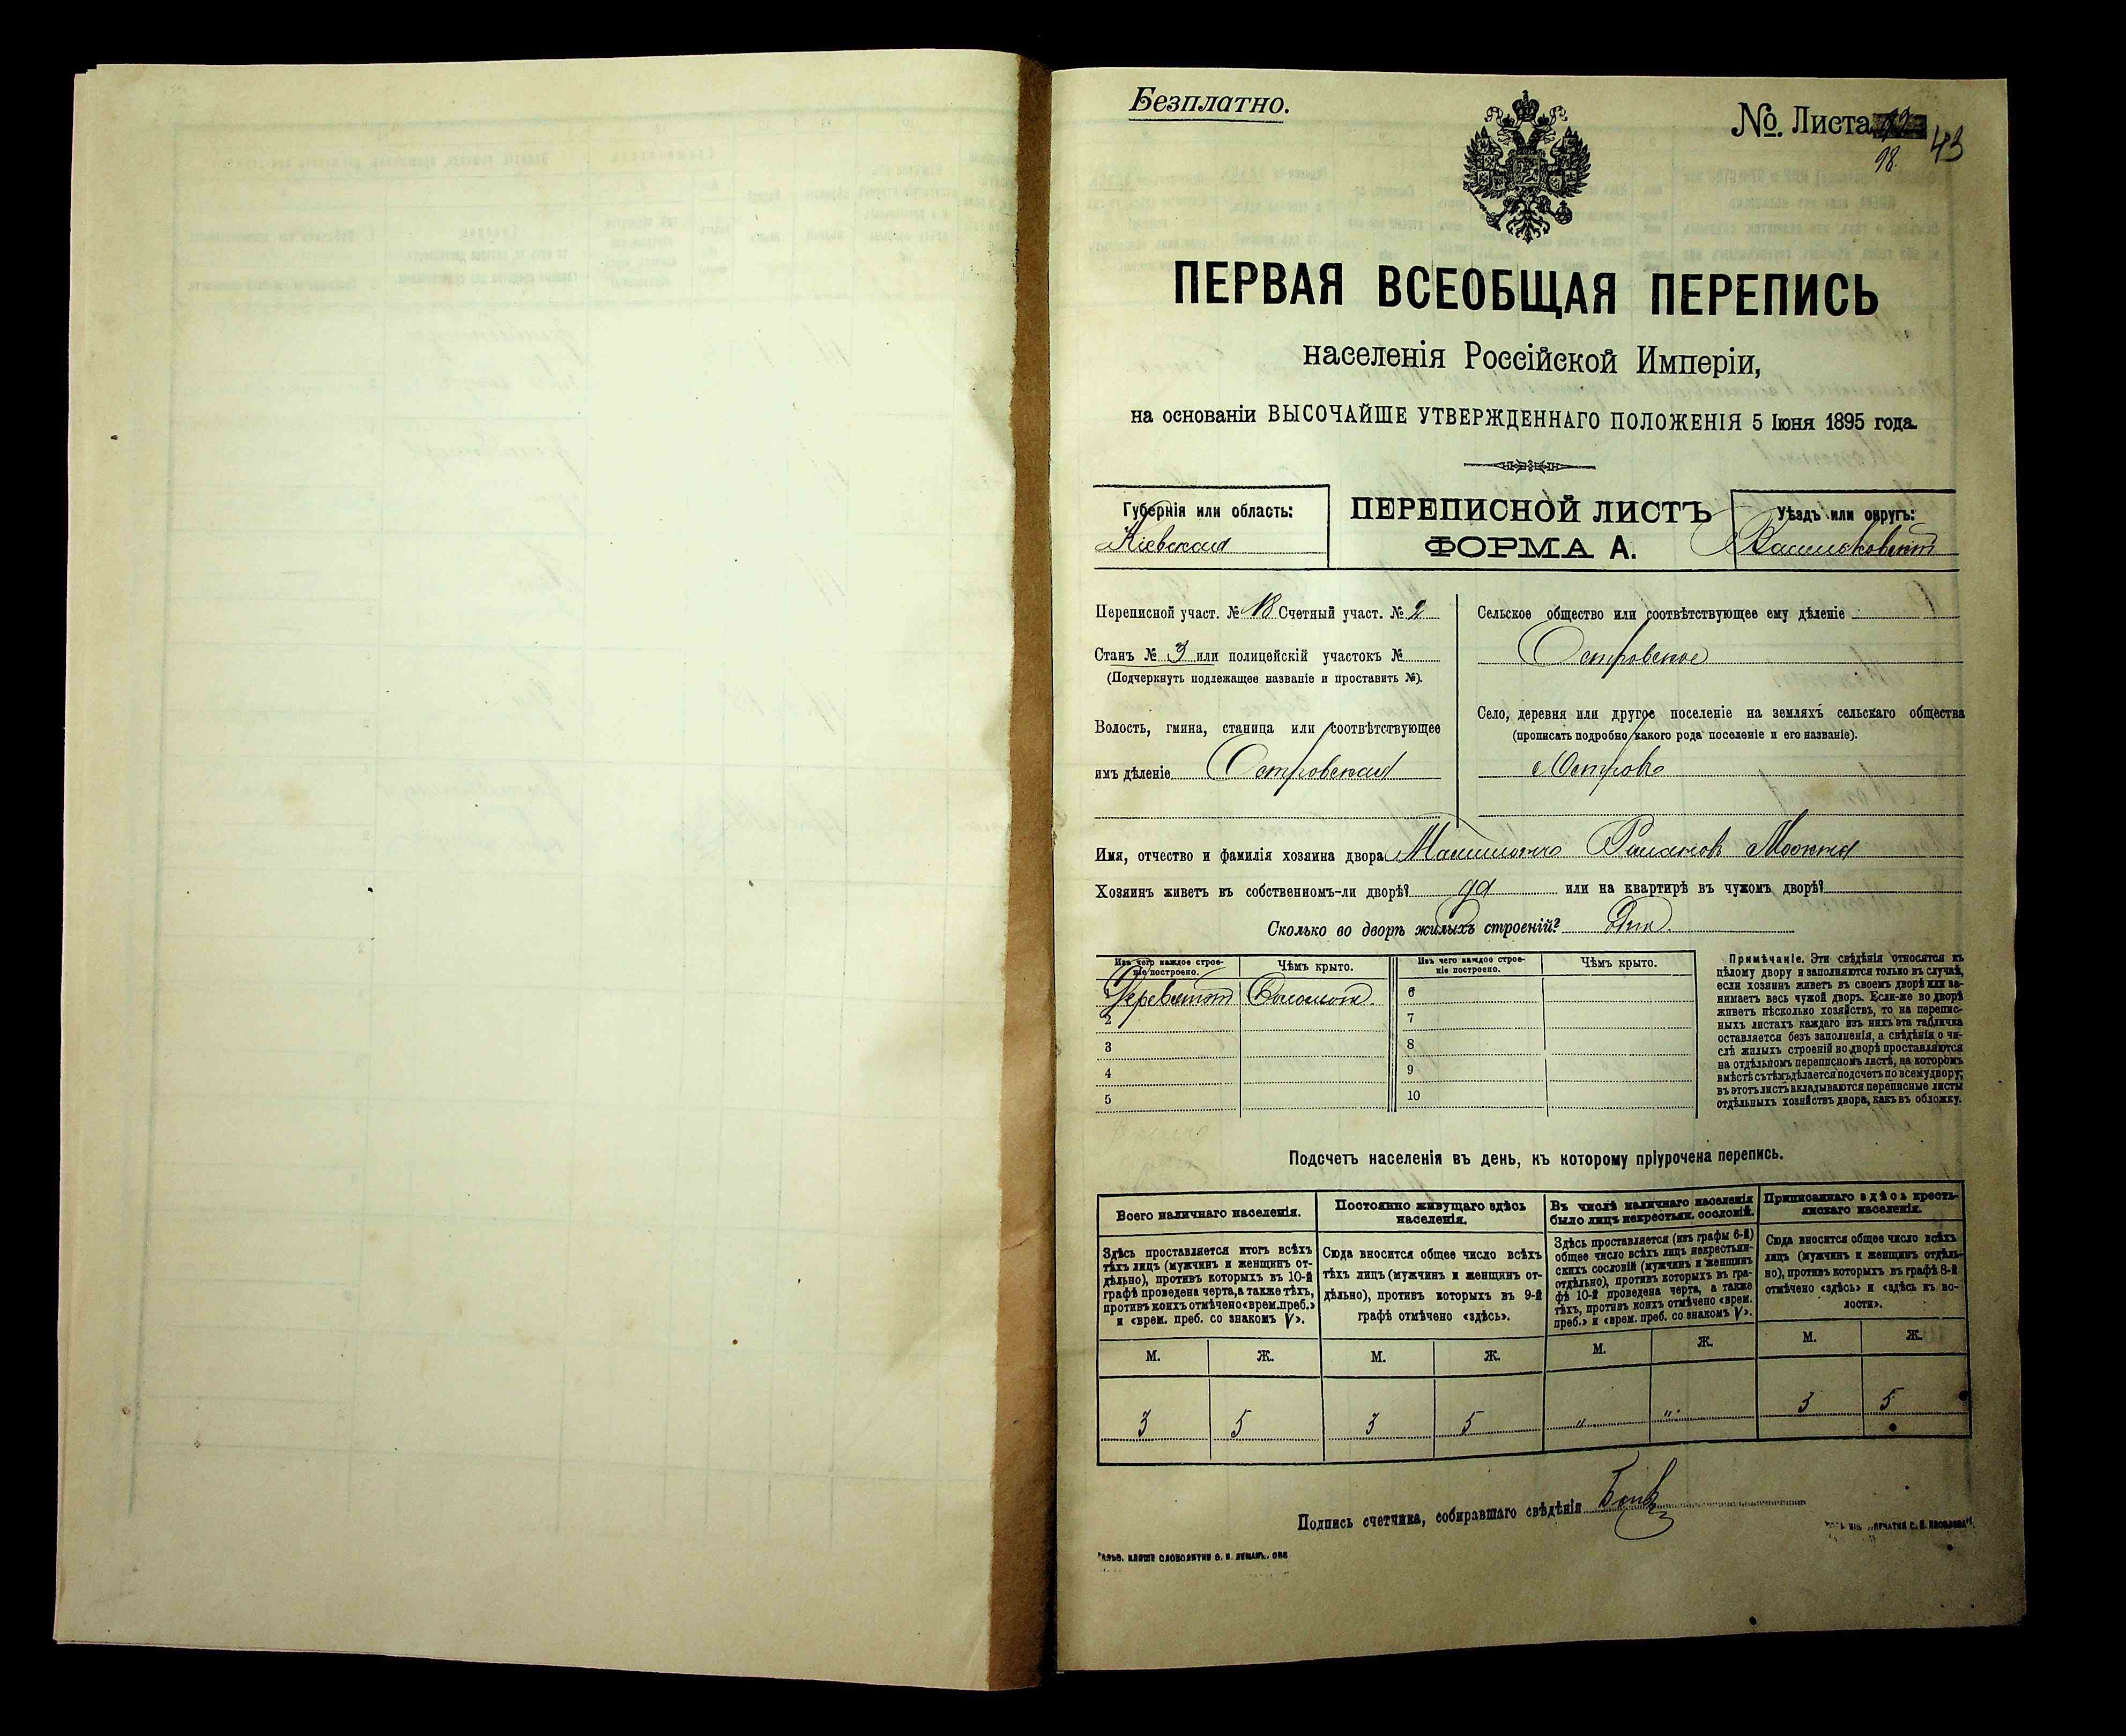 Безплатно.
№ Листа
98. 43
ПЕРВАЯ ВСЕОБЩАЯ ПЕРЕПИСЬ
населенія Россійской Имперіи,
на основаніи ВЫСОЧАЙШЕ УТВЕРЖДЕННАГО ПОЛОЖЕНІЯ 5 Іюня 1895 года.
Губернія или область:
Кіевская
ПЕРЕПИСНОЙ ЛИСТЪ
ФОРМА А.
Уѣздъ или округъ:
Васильковскій
Переписной участ. № 18 Счетный участ. № 2
Станъ № 3 или полицейскій участокъ №
(Подчеркнуть подлежащее названіе и проставить №).
Волость, гмина, станица или соотвѣтствующее
имъ дѣленіе Островская
Сельское общество или соотвѣтствующее ему дѣленіе
Островское
Село, деревня или другое поселеніе на земляхъ сельскаго общества
(прописать подробно какого рода поселеніе и его названіе).
с Островъ
Имя, отчество и фамилія хозяина двора
Хозяинъ живетъ въ собственномъ-ли дворѣ? да или на квартирѣ въ чужомъ дворѣ?
Сколько во дворѣ жилыхъ строеній?
Изъ чего каждое строе-
ніе построено.
Чѣмъ крыто.
Изъ чего каждое строе-
ніе построено.
Чѣмъ крыто.
1 Соломой 6
2 7
3 8
4 9
5 10
Примѣчаніе. Эти свѣдѣнія относятся къ
цѣлому двору и заполняются только въ случаѣ,
если хозяинъ живетъ въ своемъ дворѣ или за-
нимаетъ весь чужой дворъ. Если-же во дворѣ
живетъ нѣсколько хозяйствъ, то на перепис-
ныхъ листахъ каждаго изъ нихъ эта табличка
оставляется безъ заполненія, а свѣдѣнія о чи-
слѣ жилыхъ строеній во дворѣ проставляются
на отдѣльномъ переписномъ листѣ, на которомъ
вмѣстѣ съ тѣмъ дѣлается подсчетъ по всему двору;
въ этотъ листъ вкладываются переписные листы
отдѣльныхъ хозяйствъ двора, какъ въ обложку.
Подсчетъ населенія въ день, къ которому пріурочена перепись.
Всего наличнаго населенія.
Здѣсь проставляется итогъ всѣхъ
тѣхъ лицъ (мужчинъ и женщинъ от-
дѣльно), противъ которыхъ въ 10-й
графѣ проведена черта, а также тѣхъ,
противъ коихъ отмѣчено «врем. преб.»
и «врем. преб. со знакомъ V».
Постоянно живущаго здѣсь
населенія.
Сюда вносится общее число всѣхъ
тѣхъ лицъ (мужчинъ и женщинъ от-
дѣльно), противъ которыхъ въ 9-й
графѣ отмѣчено «здѣсь».
Въ числѣ наличнаго населенія
было лицъ некрестьян. сословій.
Здѣсь проставляется (изъ графы 6-й)
общее число всѣхъ лицъ некрестьян-
скихъ сословій (мужчинъ и женщинъ
отдѣльно), противъ которыхъ въ гра-
фѣ 10-й проведена черта, а также
тѣхъ, противъ коихъ отмѣчено «врем.
преб.» и «врем. преб. со знакомъ V».
Приписаннаго здѣсь кресть-
янскаго населенія.
Сюда вносится общее число всѣхъ
лицъ (мужчинъ и женщинъ отдѣль-
но), противъ которыхъ въ графѣ 8-й
отмѣчено «здѣсь» и «здѣсь къ во-
лости».
М. Ж. М. Ж. М. Ж. М. Ж.
3 5 3 5 " " 3 5
Подпись счетчика, собиравшаго свѣдѣнія